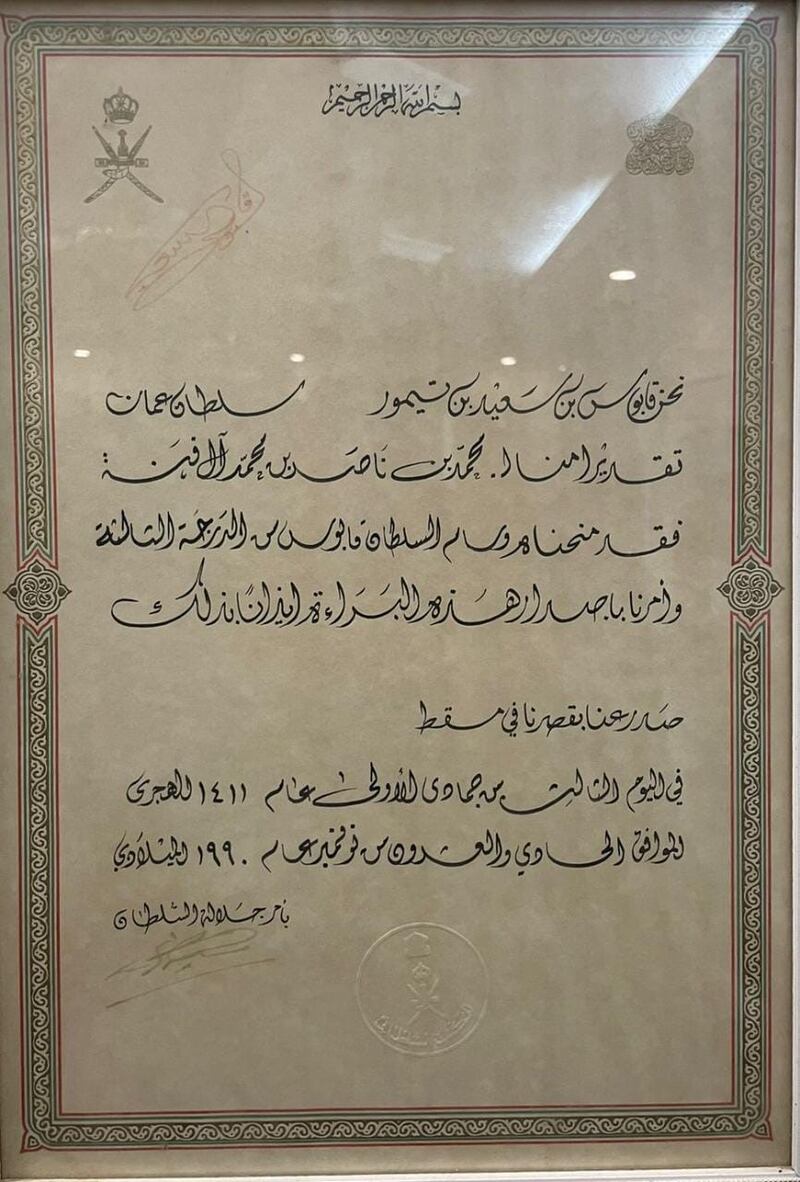 بسم الله الرحمن الرحيم
نحن قابوس بن سعيد بن تيمور سلطان عمان
تقديرا منا لـ. محمد بن ناصر بن محمد آل فنة
فقد منحناه وسام السلطان قابوس من الدرجة الثالثة
وأمرنا بإصدار هذه البراءة إيذانًا بذلك
صدر عنا بقصرنا في مسقط
في اليوم الثالث من جمادى الأولى عام ١٤١١ للهجرى
الموافق الحادي والعشرون من نوفمبر عام ١٩٩٠ الميلادي
بأمر جلالة السلطان